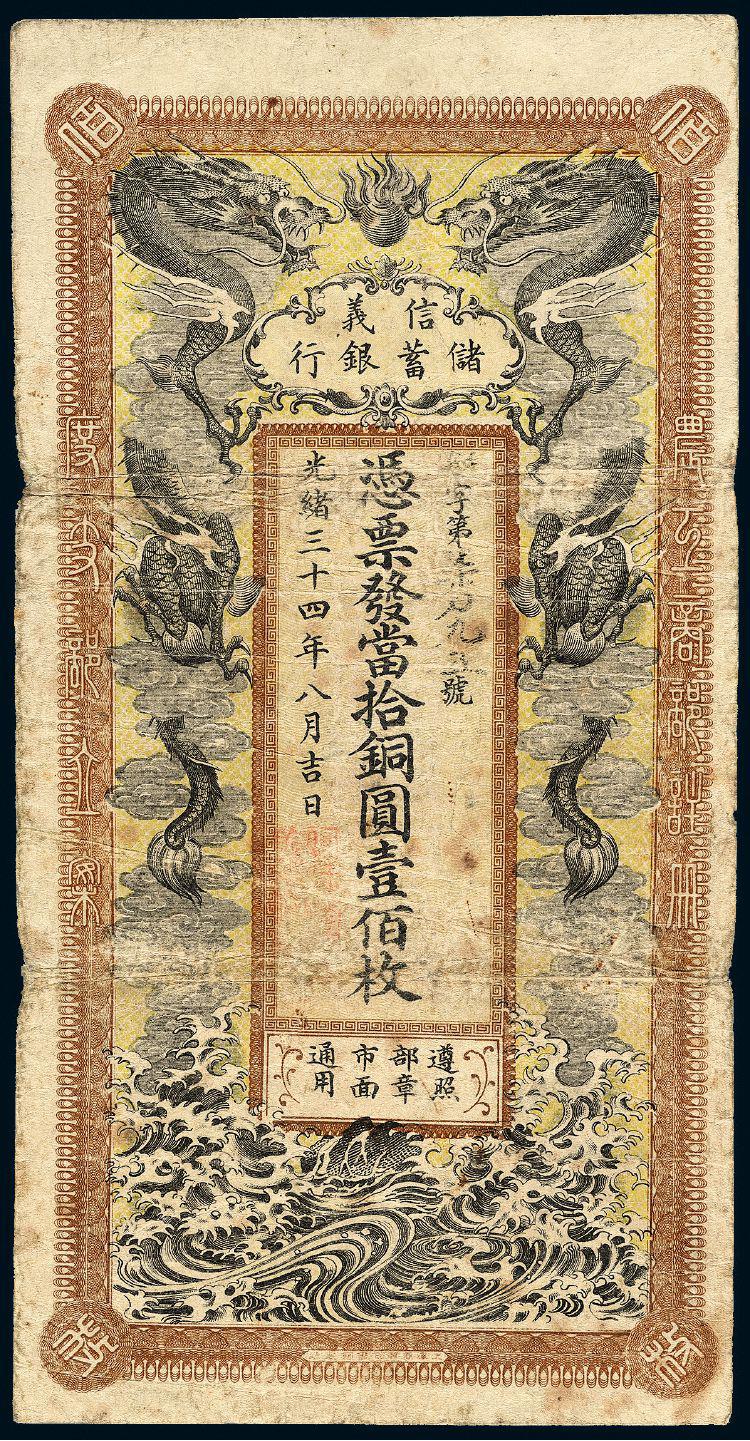 佰
佰
信義
儲蓄銀行
字第
號
憑票發當拾銅圓壹佰枚
光緒三十四年八月吉日
農工商部註冊
度支部立案
遵照
部章
市面
通用
枚
枚